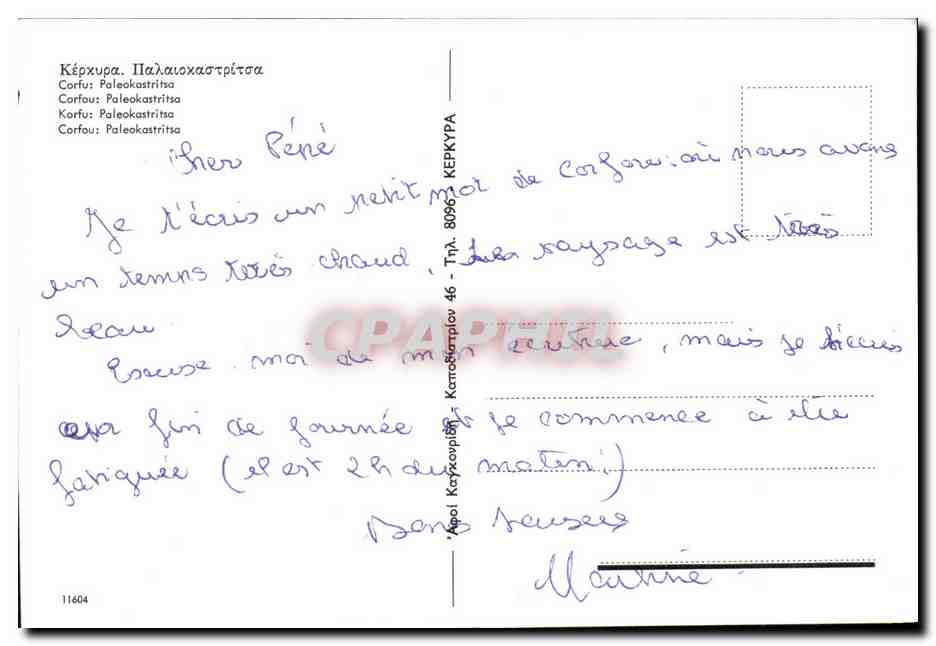 Κέρκυρα. Παλαιοκαστρίτσα
Corfu: Paleokastritsa
Corfou: Paleokastritsa
Korfu: Paleokastritsa
Corfou: Paleokastritsa
Cher Pépé
Je t'écris un petit mot de Corfou où nous avons
un temps très chaud. Le paysage est très
beau
Excuse moi de mon écriture, mais je t'écris
en fin de journée et je commence à être
fatiguée (il est 2h du matin!)
Bons baisers
Martine.
Ἀφοί Καγκουρίδη - Καποδιστρίου 46 - Τηλ. 8096 - ΚΕΡΚΥΡΑ
CPAPHIL
11604